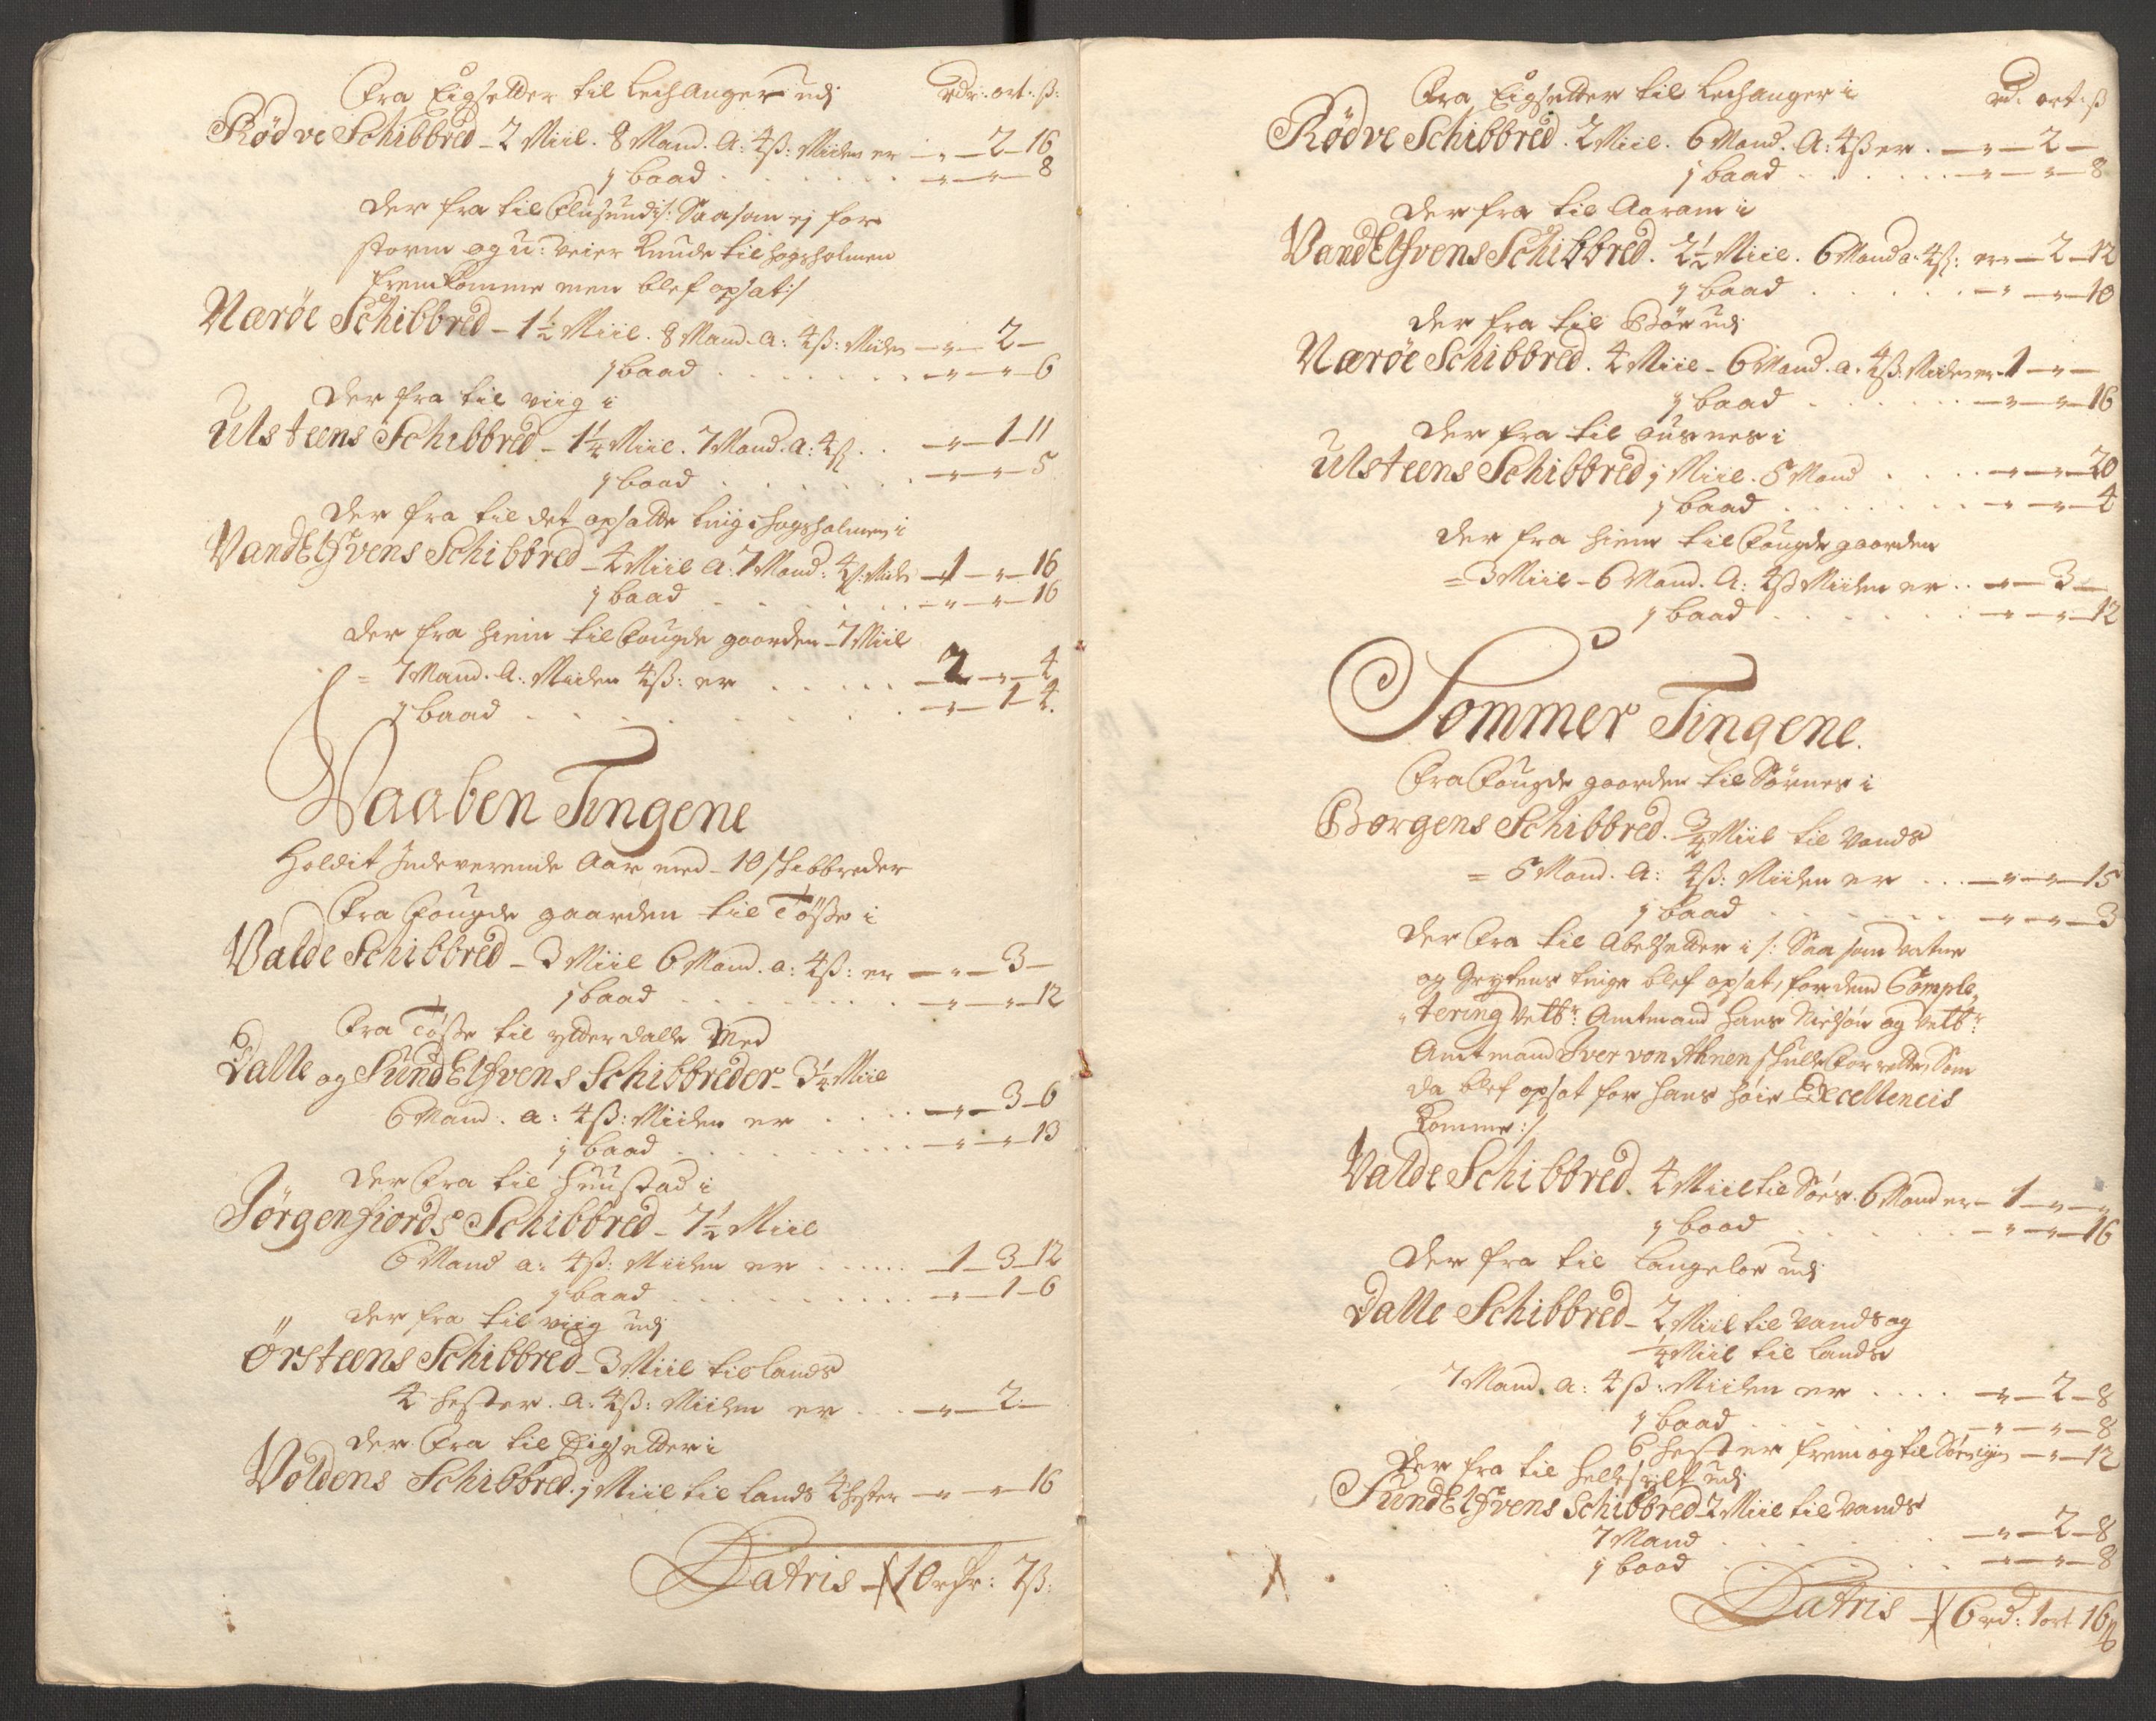 Fra Eigsetter til Leichanger udj
rdr: ort: ß:
Rødve Schibbred - 2 Miil. 8 Mand. A: 4ß: Miilen er - " - 2 - 16
1 baad - " - " - 8
Der fra til Flusund /: Saasom ej for
storm og u: veier kunde til Hogsholmen
fremkomme men blef opsat :/
Nærøe Schibbred - 1½ Miil. 8 Mand. A: 4ß: Miilen - " - 2 -
1 baad - " - " - 6
Der fra til Viig i
Ulsteens Schibbred - 1¼ Miil. 7 Mand. A: 4ß - " - 1 - 11
1 baad - " - " - 5
Der fra til det opsatte ting i Hogsholmen i
VandElfvens Schibbred - 4 Miil A: 7 Mand: 4ß: Miilen - 1 - " - 16
1 baad - " - " - 16
Der fra hiem til Fougde gaarden - 7 Miil
= 7 Mand. A: Miilen 4ß: er - 2 - " - 4
1 baad - " - 1 - 4.
Waaben Tingene
Holdit Indeverende Aar med - 10 Schibbreder
Fra Fougde gaarden til Tøsse i
Valde Schibbred - 3 Miil 6 Mand. a: 4ß: er - " - 3 -
1 baad - " - " - 12
Fra Tøsse til ytterdalle Med
Dalle og SundElfvens Schibbreder - 3¼ Miil
6 Mand. a: 4ß: Miilen er - " - 3 - 6
1 baad - " - " - 13
Der Fra til Huustad i
Jørgenfiords Schibbred - 7½ Miil
6 Mand a: 4ß: Miilen er - 1 - 3 - 12
1 baad - " - 1 - 6
Der fra til Viig udj
Ørsteens Schibbred - 3 Miil til lands
4 Hester. A: 4ß: Miilen er - " - 2 -
Der Fra til Eigsetter i
Voldens Schibbred. 1 Miil til Lands 4 hester - " - " - 16
Latris - 10 rdr: 7ß:
Fra Eigsetter til Leichanger i
rd: ort: ß
Rødve Schibbred. 2 Miil. 6 Mand. A: 4ß er. - " - 2 -
1 baad - " - " - 8
Der fra til Aaram i
VandElfvens Schibbred. 2½ Miil. 6 Mand a: 4ß: er - " - 2 - 12
1 baad - " - " - 10
Der fra til Bøe udj
Nærøe Schibbred. 4 Miil - 6 Mand. a. 4ß: Miilen er - 1 - " -
1 baad - " - " - 16
Der fra til Ousnes i
Ulsteens Schibbred 1 Miil. 5 Mand - " - " - 20
1 baad - " - " - 4
Der fra hiem til Fougde gaarden
= 3 Miil - 6 Mand. A: 4ß Miilen er - " - 3 -
1 baad - " - " - 12
Sommer Tingene.
Fra Fougde gaarden til Søvnes i
Borgens Schibbred. ¾ Miil til Vands
= 5 Mand. A: 4ß: Miilen er - " - " - 15
1 baad - " - " - 3
Der Fra til Abelsetter i /: Saasom Vatne
og Grytens tinge blef opsat, for dend Comple,
"tering Velb: Amtmand Hans Nielsøn og Velb:
Amtmand Iver von Ahnen skulle for rette, Som
da blef opsat for Hans Høie Excellencis
komme :/
Valde Schibbred. 4 Miil til Søes. 6 Mand er - 1 - " - "
1 baad - " - " - 16
Der fra til Langeloe udj
Dalle Schibbred - 2 Miil til Vands og
¼ Miil til Lands
7 Mand. a: 4ß: Miilen er - " - 2 - 8
1 baad - " - " - 8
6 Hester frem og til - " - 12
Der fra til Hellesylt udj
SundElfvens Schibbred - 2 Miil til Vands
7 Mand - " - 2 - 8
1 baad - " - " - 8
Latris - 6 rd: 1 ort 16ß